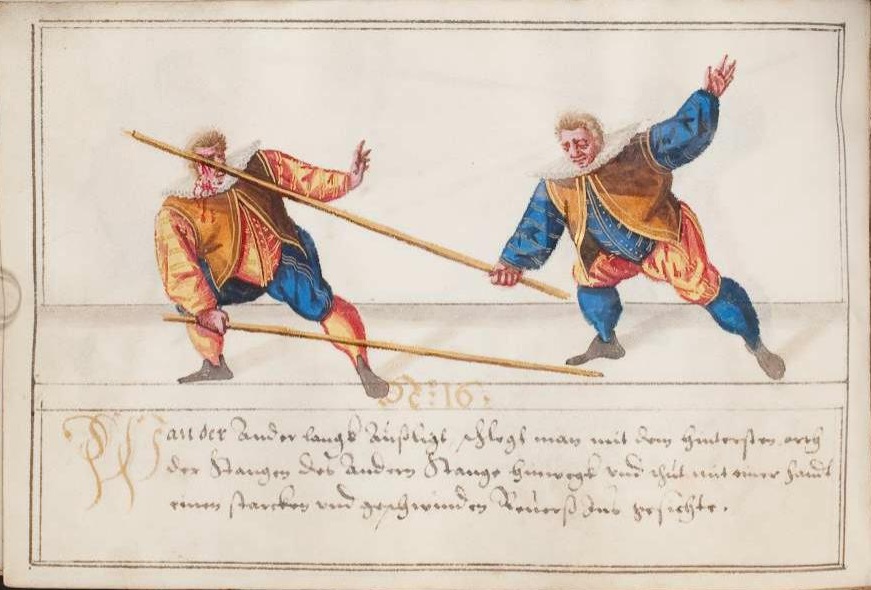 N: 16.
Wan der Ander langk Außligt, schlegt man mit dem hintersten orth
der Stangen des Andern Stange hinwegk vnd thut mit einer handt
einen starcken vnd geschwinden Reuerß Ins gesichte.